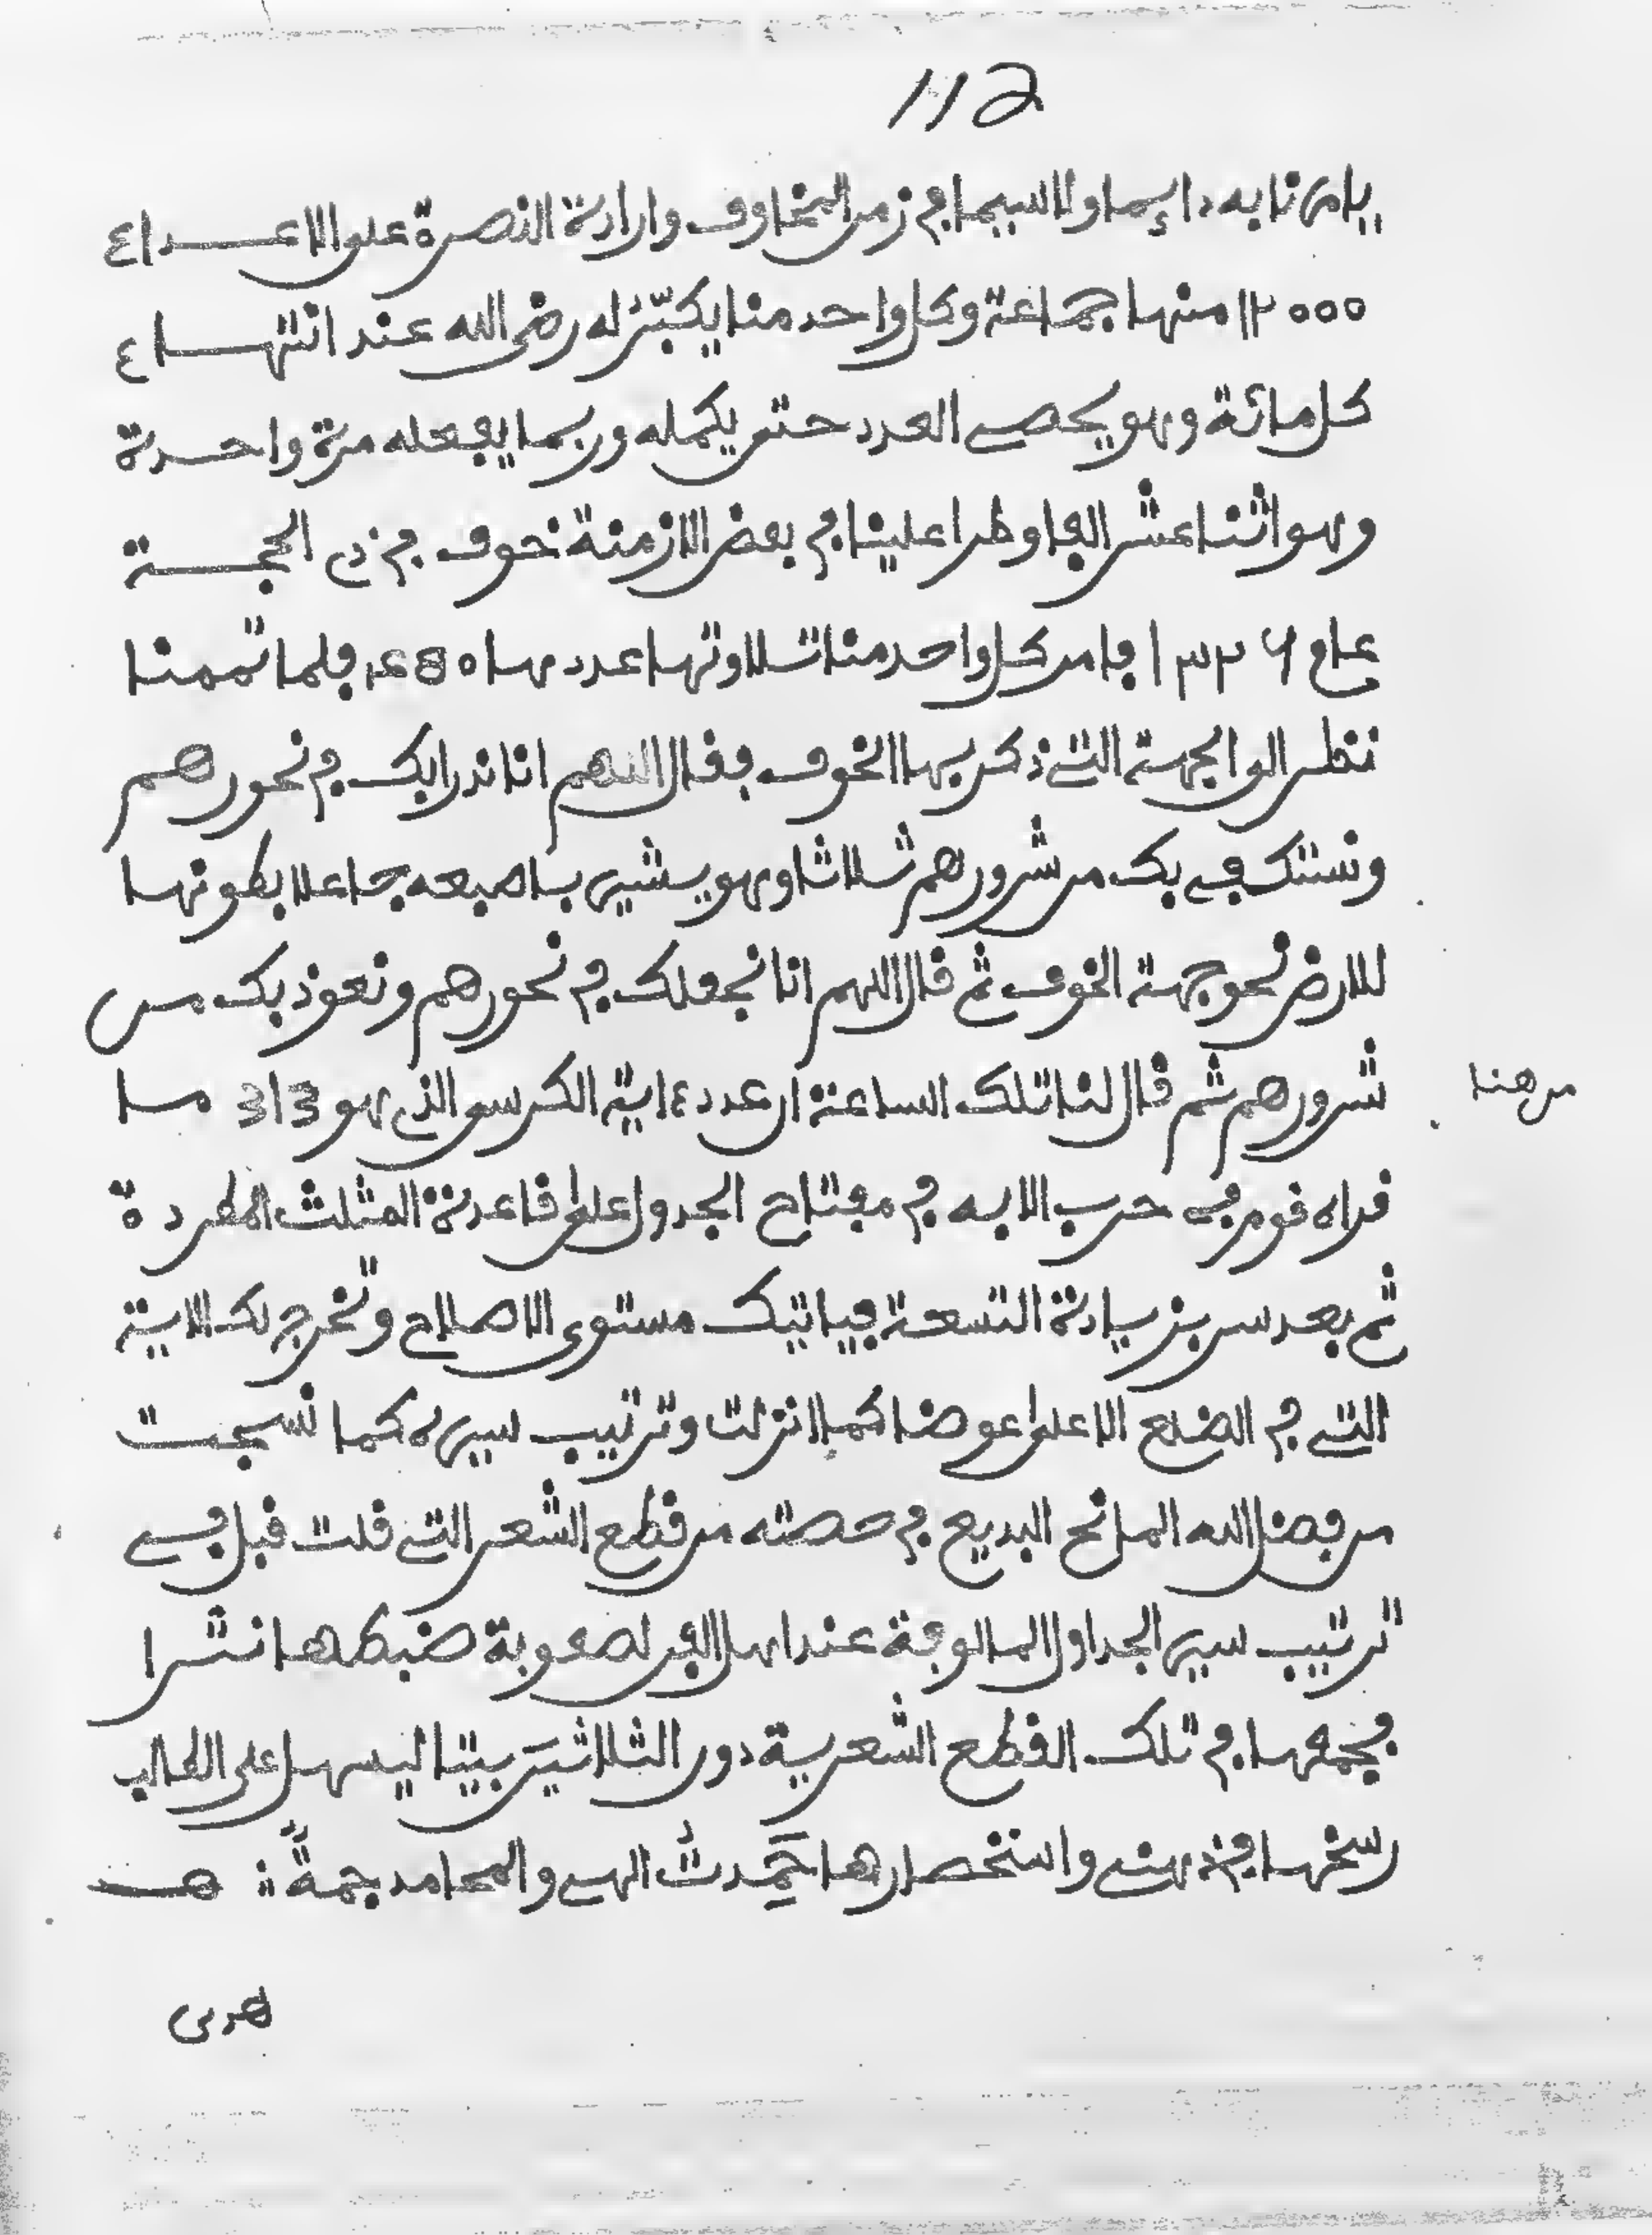 112
يامرنا به دايما ولاسيما في زمن المخاوف وارادة النصرة على الاعداء
12000 منها جماعة وكل واحد منا يكبّر له رضي الله عند انتهاء
كل مائة وهو يحصي العدد حتى يكمله وربما يفعله مرة واحدة
وهو اثنا عشر الفا وطرا علينا في بعض الازمنة خوف في ذي الحجة
عام ١٣٢٦ فامر كل واحد منا تلاوتها عددها فلما تممنا
نظر الى الجهة التي ذكر بها الخوف فقال اللهم انا ندرا بك في نحورهم
ونستكفي بك من شرورهم ثلاثا وهو يشير باصبعه جاعلا بطونها
للارض نحو جهة الخوف ثم قال اللهم انا نجعلك في نحورهم ونعوذ بك من
شرورهم ثم قال لنا تلك الساعة ان عدد ءاية الكرسي الذي هو 313 ما
من هنا
قراه قوم في حرب الا به في مفتاح الجدول على قاعدة المثلث المطردة
ثم بعد سر بزيادة التسعة فياتيك مستوى الاصلاح وتخرج لك الاية
التي في الضلع الاعلى عوضا كما انزلت وترتيب سيره كما نسجت
من فضل الله المانح البديع في حصته من قطع الشعر التي قلت قبل في
ترتيب سير الجداول المالوفة عند اهل الفن لصعوبة ضبطها نثرا
فجمعها في تلك القطع الشعرية دون الثلاثين بيتا ليسهل على الطالب
رسخها في ذهنه واستحضارها حَمِدتُ الهي والمحامد جمةً
هدى